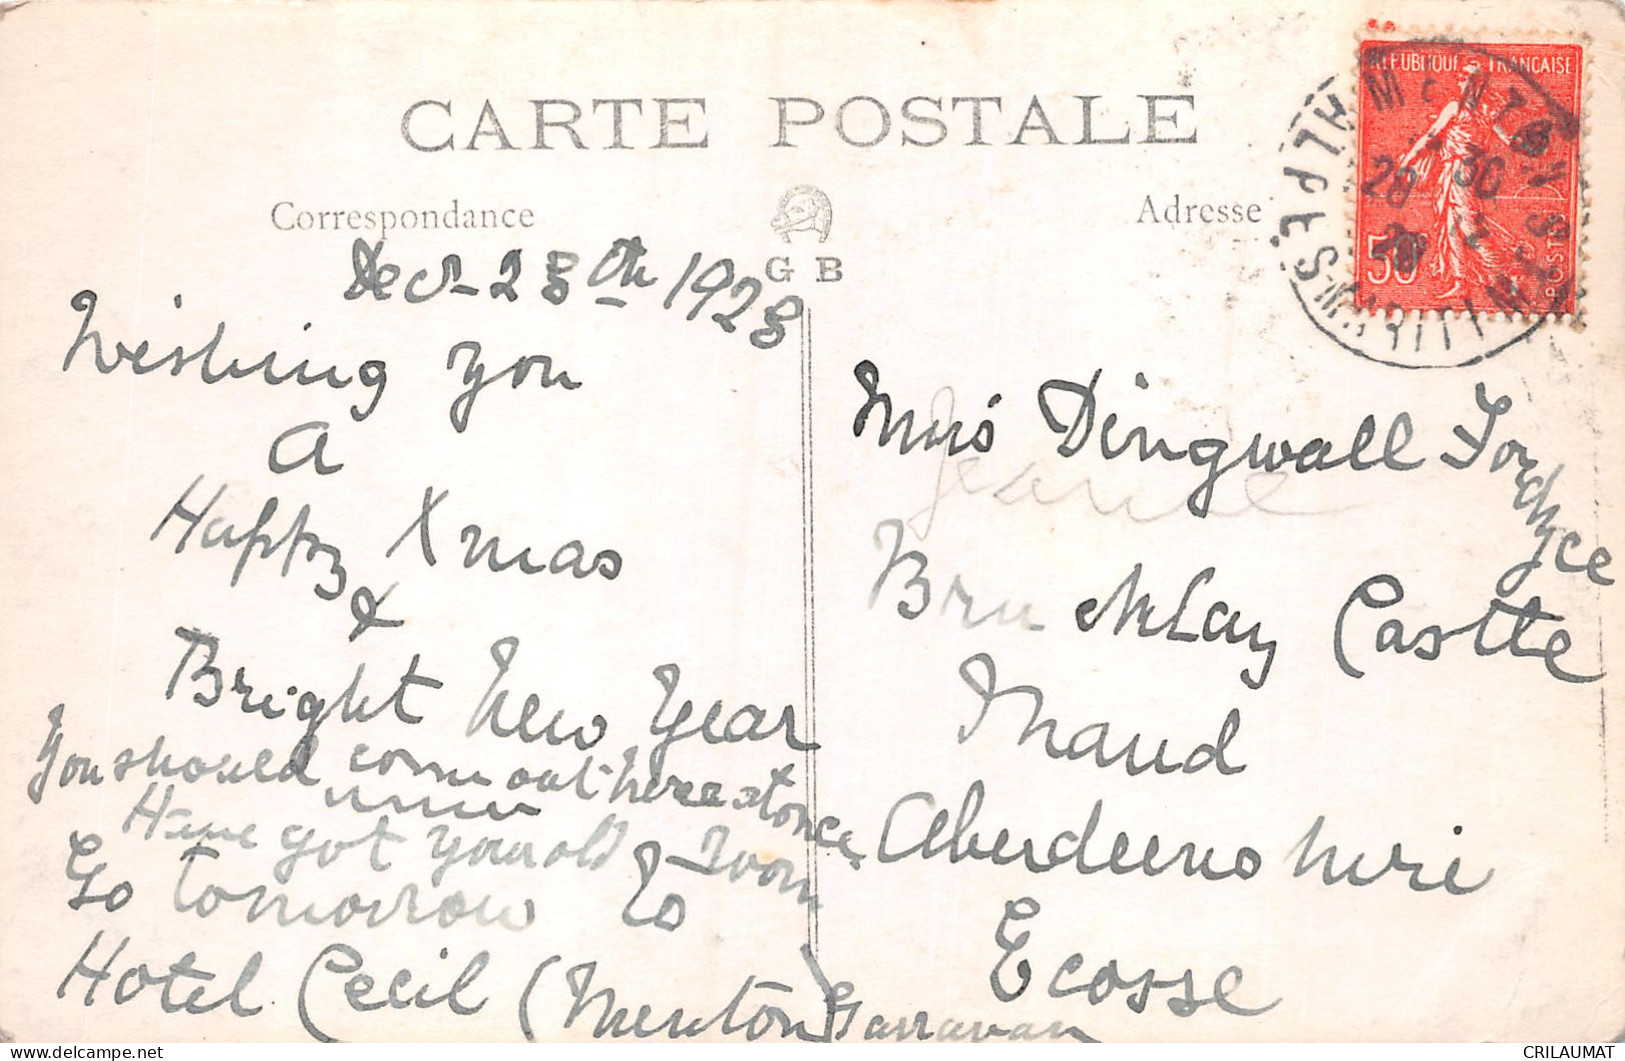 CARTE POSTALE
Correspondance
Adresse
G B
REPUBLIQUE FRANCAISE
50
POSTES
MENTON
ALPES MARITIMES
Dec 28th 1928
Wishing you
a
Happy Xmas
&
Bright New Year
You should come out here at once
Have got your old Room
Go tomorrow to
Hotel Cecil (Menton) Garravan
Mrs Dingwall Fordyce
Brucklay Castle
Maud
Aberdeenshire
Ecosse
delcampe.net
CRILAUMAT